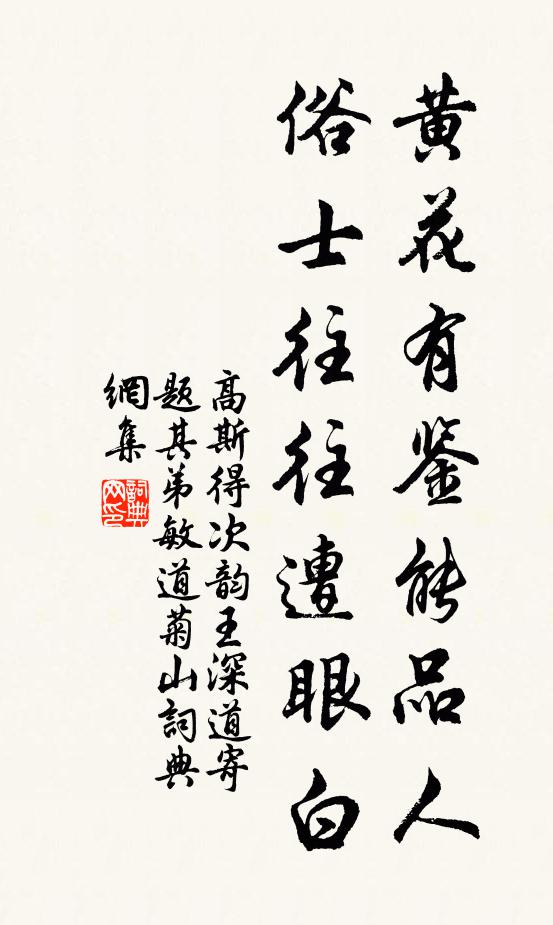 黄花有鉴能品人
俗士往往遭眼白
高斯得次韵王深道寄
题其弟敏道菊山詞典
網集
詞典
网印